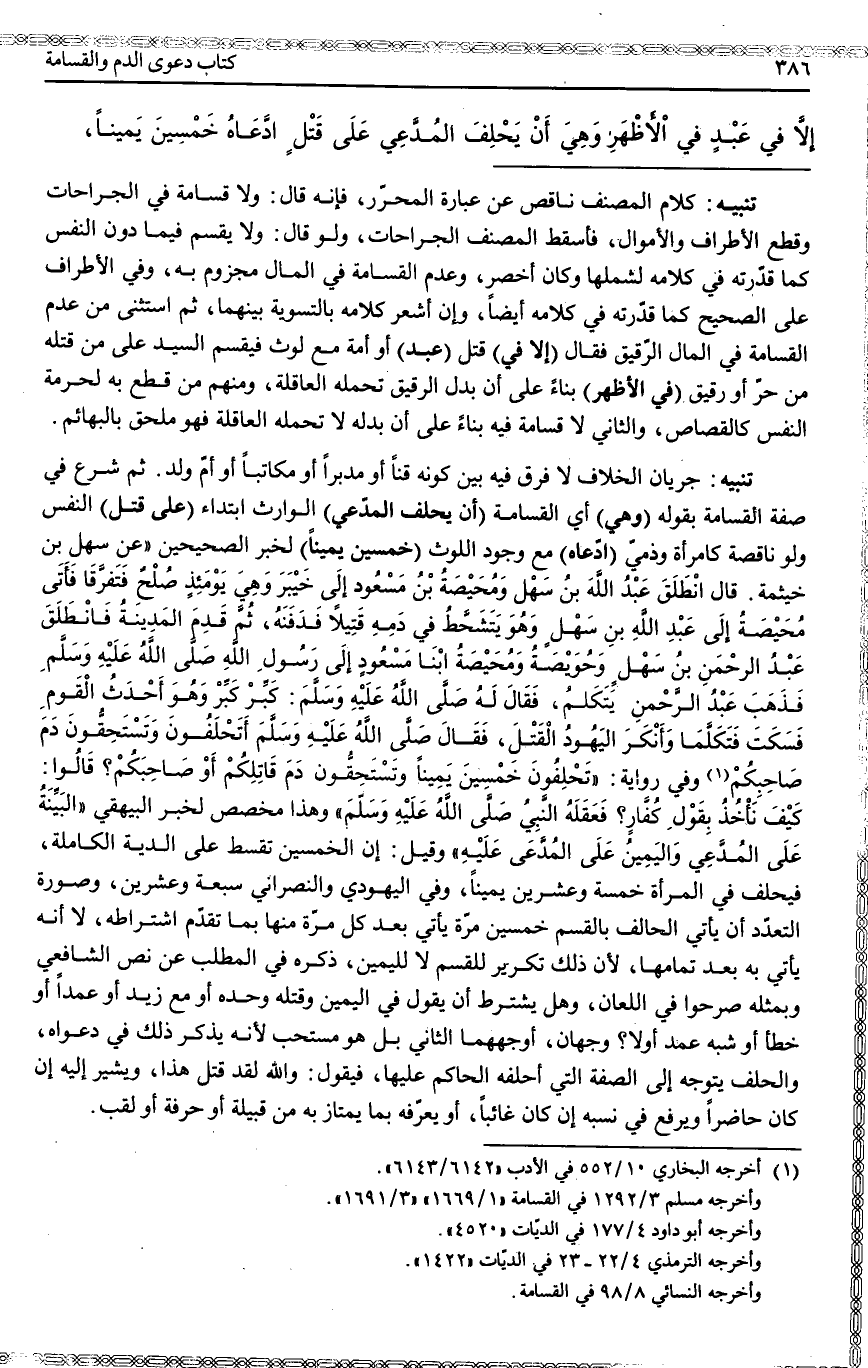 ٣٨٦ كتاب دعوى الدم والقسامة
إلَّا في عَبْدٍ في الْأَظْهَرِ وَهِيَ أَنْ يَحْلِفَ المُدَّعِي عَلَى قَتْلٍ ادَّعَاهُ خَمْسِينَ يَمِيناً،
تنبيه: كلام المصنف ناقص عن عبارة المحرّر، فإنه قال: ولا قسامة في الجراحات
وقطع الأطراف والأموال، فأسقط المصنف الجراحات، ولو قال: ولا يقسم فيما دون النفس
كما قدّرته في كلامه لشملها وكان أخصر، وعدم القسامة في المال مجزوم به، وفي الأطراف
على الصحيح كما قدّرته في كلامه أيضاً، وإن أشعر كلامه بالتسوية بينهما، ثم استثنى من عدم
القسامة في المال الرّقيق فقال (إلا في) قتل (عبد) أو أمة مع لوث فيقسم السيد على من قتله
من حرّ أو رقيق (في الأظهر) بناءً على أن بدل الرقيق تحمله العاقلة، ومنهم من قطع به لحرمة
النفس كالقصاص، والثاني لا قسامة فيه بناءً على أن بدله لا تحمله العاقلة فهو ملحق بالبهائم.
تنبيه: جريان الخلاف لا فرق فيه بين كونه قناً أو مدبراً أو مكاتباً أو أمّ ولد. ثم شرع في
صفة القسامة بقوله (وهي) أي القسامة (أن يحلف المدّعي) الوارث ابتداء (على قتل) النفس
ولو ناقصة كامرأة وذميّ (ادّعاه) مع وجود اللوث (خمسين يميناً) لخبر الصحيحين «عن سهل بن
خيثمة. قال انْطَلَقَ عَبْدُ اللَّهِ بنُ سَهْلٍ وَمُحَيْصَةُ بْنُ مَسْعُودٍ إلَى خَيْبَرَ وَهِيَ يَوْمَئِذٍ صُلْحٌ فَتَفَرَّقَا فَأَتَى
مُحَيْصَةُ إلَى عَبْدِ اللَّهِ بنِ سَهْلٍ وَهُوَ يَتَشَحَّطُ في دَمِهِ قَتِيلاً فَدَفَنَهُ، ثُمَّ قَدِمَ المَدِينَةَ فَانْطَلَقَ
عَبْدُ الرحْمَنِ بنُ سَهْلٍ وَحُوَيْصَةُ وَمُحَيْصَةُ ابْنَا مَسْعُودٍ إلَى رَسُولِ اللَّهِ صَلَّى اللَّهُ عَلَيْهِ وَسَلَّمَ
فَذَهَبَ عَبْدُ الرَّحْمنِ يَتَكلمُ، فَقَالَ لَهُ صَلَّى اللَّهُ عَلَيْهِ وَسَلَّمَ: كَبِّرْ كَبِّرْ وَهُوَ أَحْدَثُ الْقَومِ
فَسَكَتَ فَتَكَلَّمَا وَأَنْكَرَ اليَهُودُ الْقَتْلَ، فَقَالَ صَلَّى اللَّهُ عَلَيْهِ وَسَلَّمَ أَتَحْلَفُونَ وَتَسْتَحِقُّونَ دَمَ
صَاحِبِكُمْ(١) وفي رواية: «تَحْلِفُونَ خَمْسِينَ يَمِيناً وتَسْتَحِقُّونَ دَمَ قَاتِلِكُمْ أَوْ صَاحِبِكُمْ؟ قَالُوا:
كَيْفَ نَأْخُذُ بِقَوْلِ كُفَّارٍ؟ فَعَقَلَهُ النَّبِيُّ صَلَّى اللَّهُ عَلَيْهِ وَسَلَّمَ» وهذا مخصص لخبر البيهقي «البَيِّنَةُ
عَلَى المُدَّعِي وَاليَمِينُ عَلَى المُدَّعَى عَلَيْهِ» وقيل: إن الخمسين تقسط على الدية الكاملة،
فيحلف في المرأة خمسة وعشرين يميناً، وفي اليهودي والنصراني سبعة وعشرين، وصورة
التعدّد أن يأتي الحالف بالقسم خمسين مرّة يأتي بعد كل مرّة منها بما تقدّم اشتراطه، لا أنه
يأتي به بعد تمامها، لأن ذلك تكرير للقسم لا لليمين، ذكره في المطلب عن نص الشافعي
وبمثله صرحوا في اللعان، وهل يشترط أن يقول في اليمين وقتله وحده أو مع زيد أو عمداً أو
خطأ أو شبه عمد أولا؟ وجهان، أوجههما الثاني بل هو مستحب لأنه يذكر ذلك في دعواه،
والحلف يتوجه إلى الصفة التي أحلفه الحاكم عليها، فيقول: والله لقد قتل هذا، ويشير إليه إن
كان حاضراً ويرفع في نسبه إن كان غائباً، أو يعرّفه بما يمتاز به من قبيلة أو حرفة أو لقب.
(١) أخرجه البخاري ٥٥٢/١٠ في الأدب «٦١٤٣/٦١٤٢».
وأخرجه مسلم ١٢٩٢/٣ في القسامة «١٦٦٩/١» «١٦٩١/٣».
وأخرجه أبو داود ١٧٧/٤ في الديّات «٤٥٢٠».
وأخرجه الترمذي ٢٢/٤ - ٢٣ في الديّات «١٤٢٢».
وأخرجه النسائي ٩٨/٨ في القسامة.